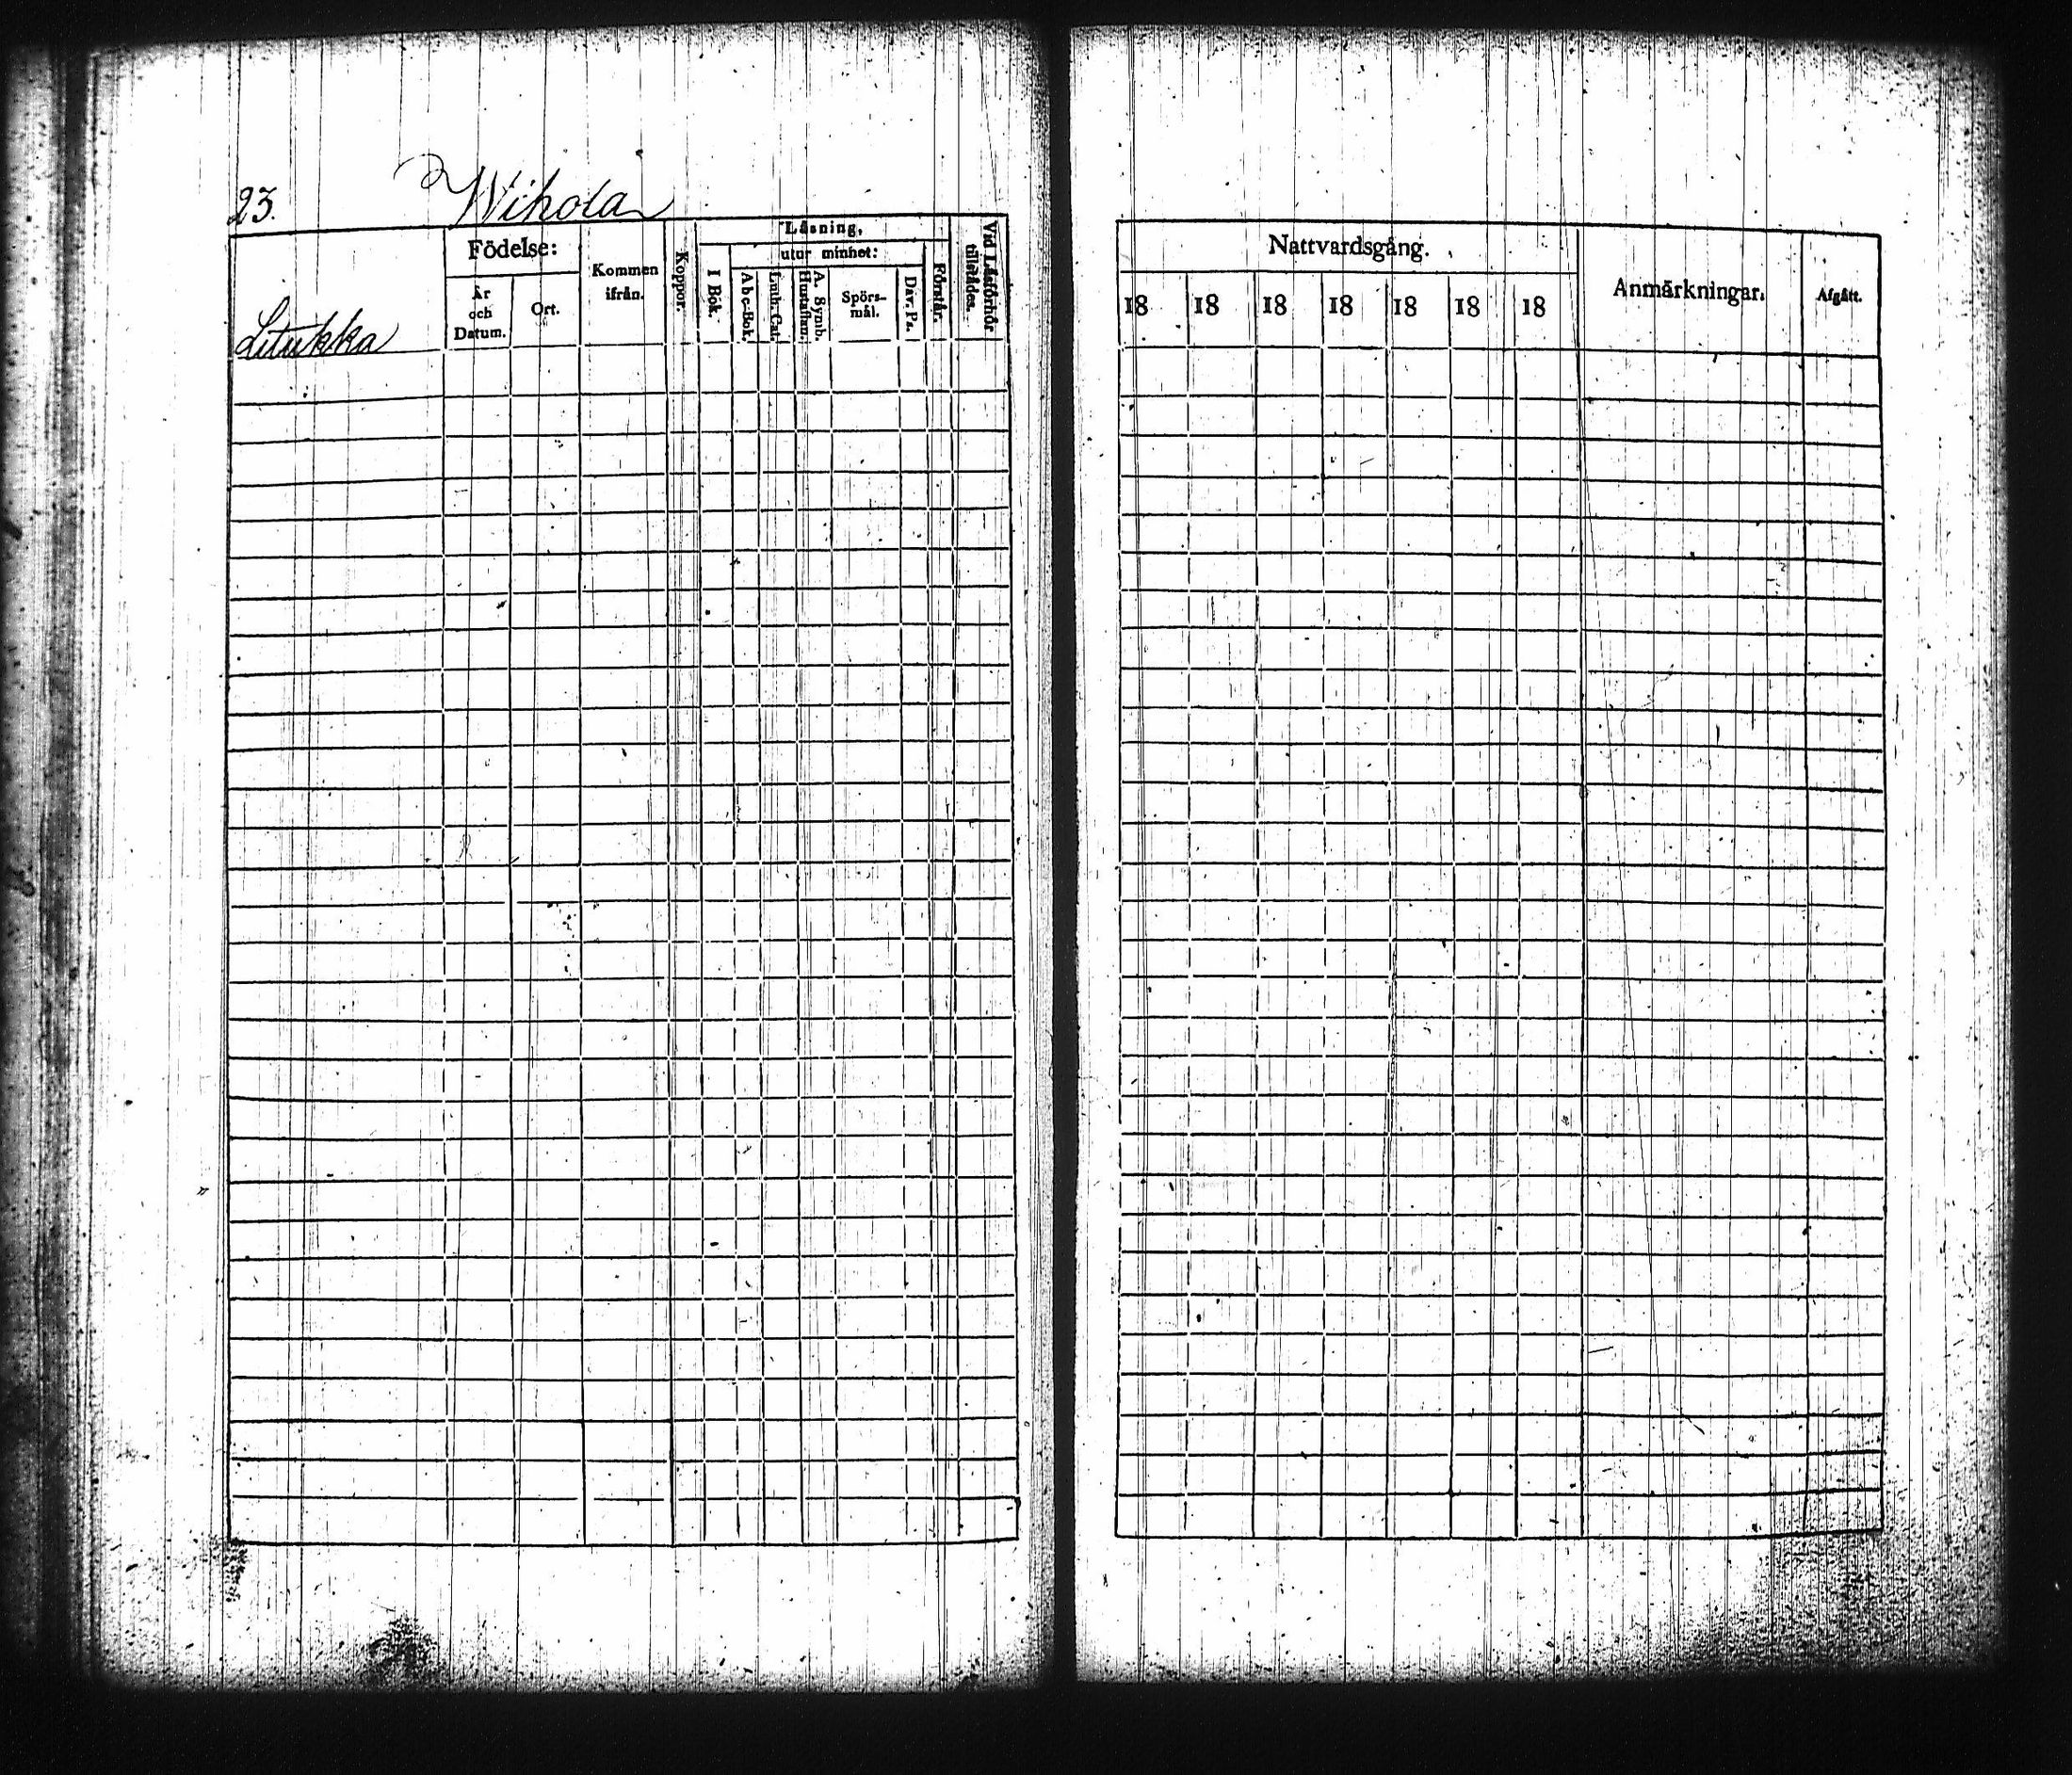 23. Wihola
Litukka
Födelse:
År och Datum.
Ort.
Kommen ifrån.
Koppor.
Läsning,
I Bok.
utur minnet:
Abc-Bok.
Luth. Cat.
A. Symb. Hustaflan.
Spörs-mål.
Dav. Ps.
Förstår.
Vid Läsförhör tillstädes.
Nattvardsgång.
18 18 18 18 18 18 18
Anmärkningar.
Afgått.